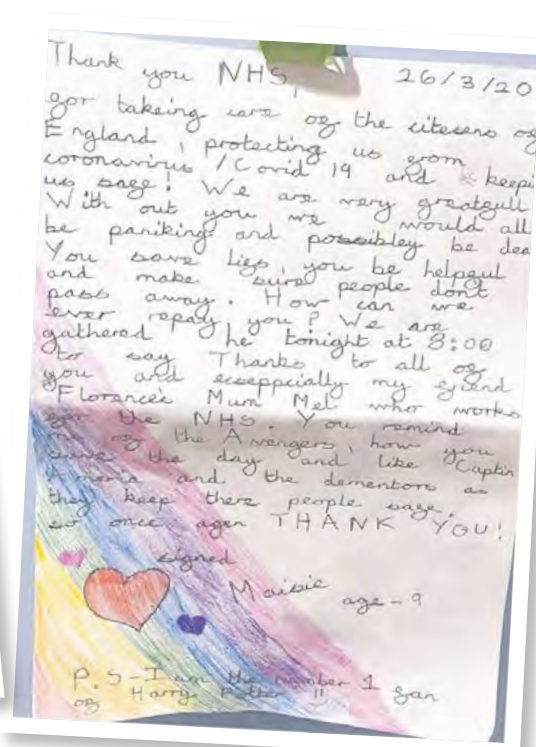 Thank you NHS, 26/3/20
for takeing care of the citesens of
England, protecting us from
coronavirus / Covid 19 and keepi
us safe! We are very greatfull
With out you we would all
be paniking and possibley be dea
You save lifs, you be helpful
and make sure people dont
pass away. How can we
ever repay you? We are
gathered he tonight at 8:00
to say Thanks to all of
you and eseppcially my friend
Florence's Mum Mel who works
for the NHS. You remind
me of the Avengers, how you
save the day and like Captin
Ameria and the dementors as
they keep there people safe.
so once agen THANK YOU!
signed
Maisie age - 9
P.S - I am the number 1 fan
of Harry Potter !!